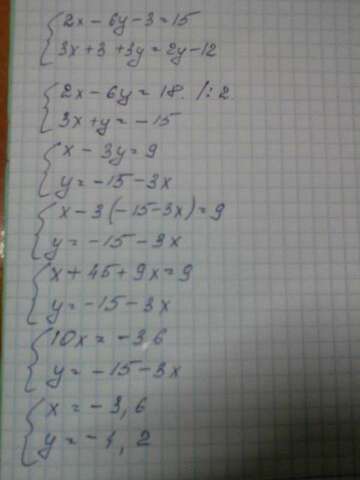 2x - 6y - 3 = 15
3x + 3 + 3y = 2y - 12
2x - 6y = 18. /: 2.
3x + y = -15
x - 3y = 9
y = -15 - 3x
x - 3(-15 - 3x) = 9
y = -15 - 3x
x + 45 + 9x = 9
y = -15 - 3x
10x = -36
y = -15 - 3x
x = -3,6
y = -4,2